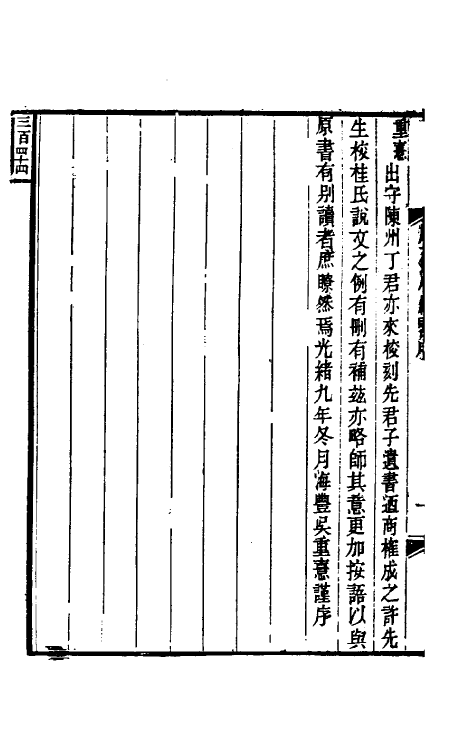 重憙出守陳州丁君亦來校刻先君子遺書迺商榷成之許先
生校桂氏說文之例有刪有補茲亦略師其意更加按語以與
原書有别讀者庶瞭然焉光緒九年冬月海豐吳重憙謹序
一
三百四十四